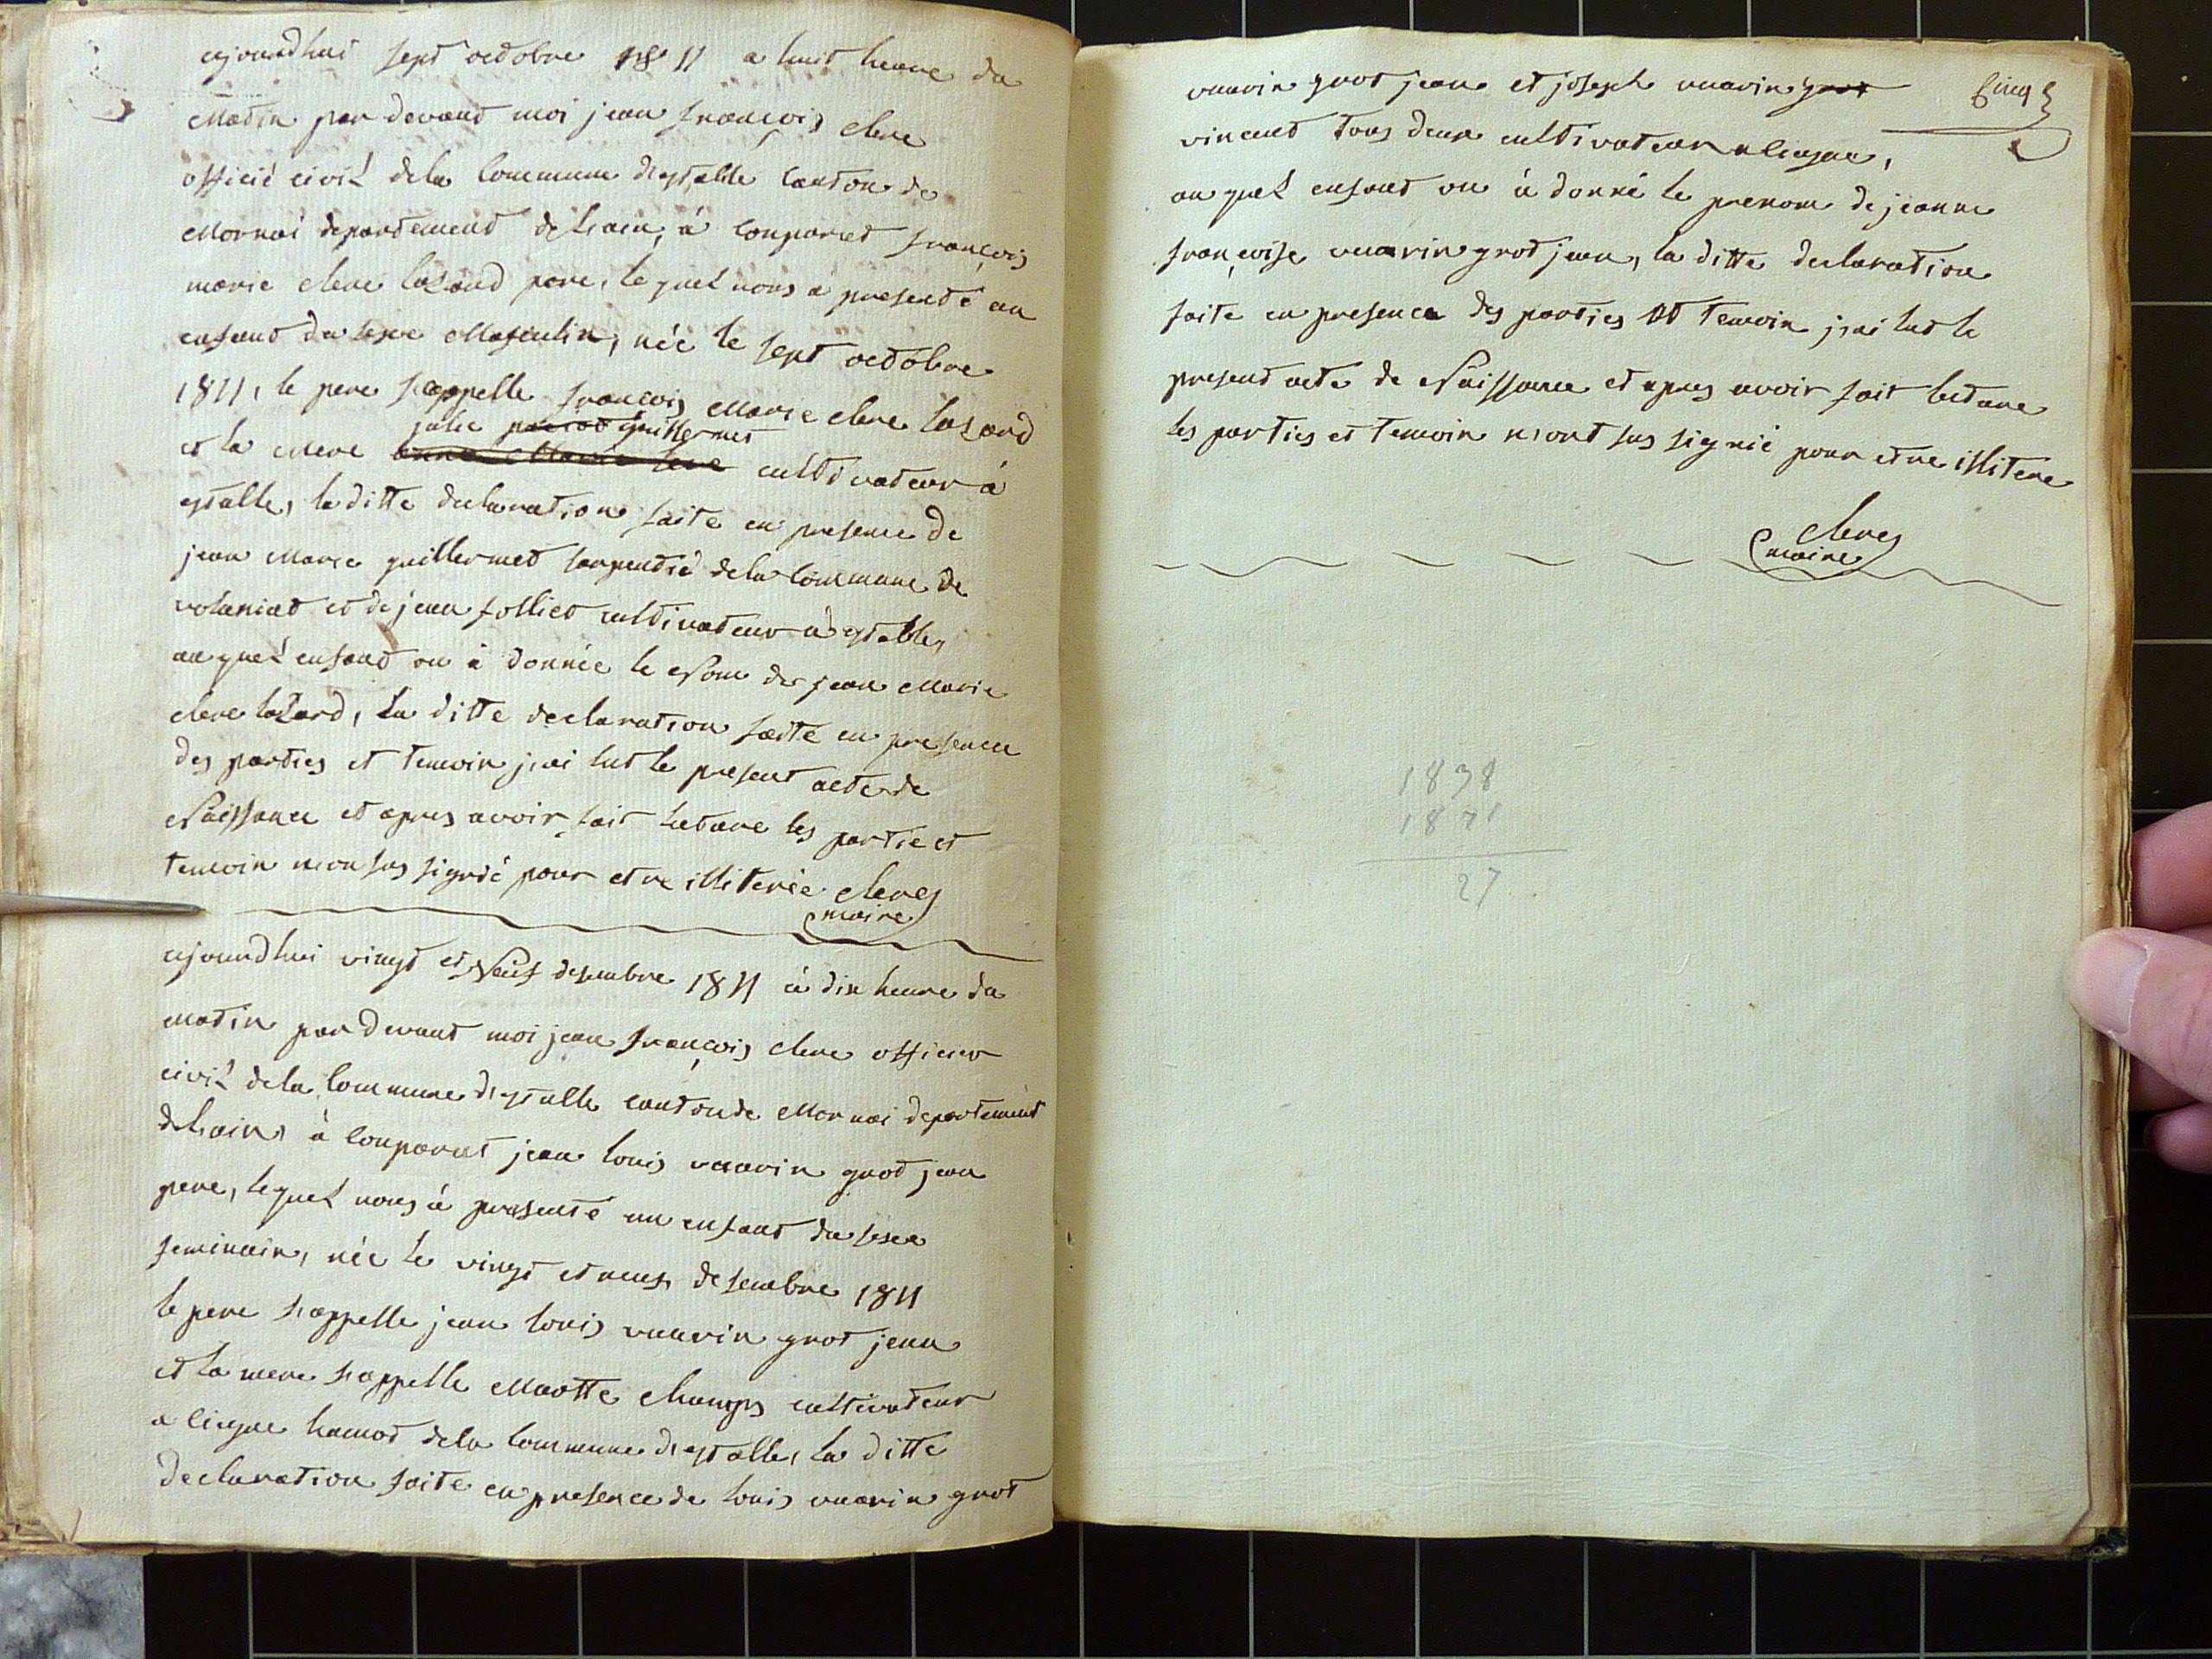 ajourdhui sept octobre 1811 a huit heure du
Matin par devant moi jean françois clerc
officié civil dela Commune d'estable Canton de
Mornai departement de l'ain, à comparut françois
marie clerc lazard pere, lequel nous a presenté un
enfant du sexe Masculin, née le sept octobre
1811, le pere s'appelle françois Marie clerc lazard
julie guillermet
et la Mere anne Marie cultivateur à
estable, la ditte declaration faite en presence de
jean Marie guillermet sarpentié dela Commune de
volaniat et de jean folliet cultivateur à estable,
au quel enfant on à donnée le Nom de jean Marie
clerc lazard, La ditte declaration faite en presence
des parties et temoin j'ai lut le present acte de
Naissance et apres avoir fait lecture les partie et
temoin n'on sus signié pour etre illiterée clercs
maire
ajourdhui vingt et Neuf desembre 1811 à dix heure du
matin par devant moi jean françois clerc officier
civil dela Commune d'estalle canton de Mornai departement
de l'ain, à comparut jean louis vuarin grot jean
pere, lequel nous à presenté un enfant du sexe
feminain, née le vingt et neuf desembre 1811
le pere s'appelle jean louis vuarin grot jean
et la mere s'appelle Marotte champs cultivateur
a licque hamot dela Commune d'estalle, La ditte
declaration faite en presence de louis vuarin grot
Cinq
vuarin grot jean et joseph vuarin grot
vincent tous deux cultivateur a licque,
au quel enfant on à donné le prenom de jeanne
françoise vuarin grot jean, la ditte declaration
faite en presence des parties et temoin j'ai lut le
present acte de Naissance et apres avoir fait lecture
les parties et temoin n'ont sus signié pour etre illitere
clercs
maire
1838
1871
27